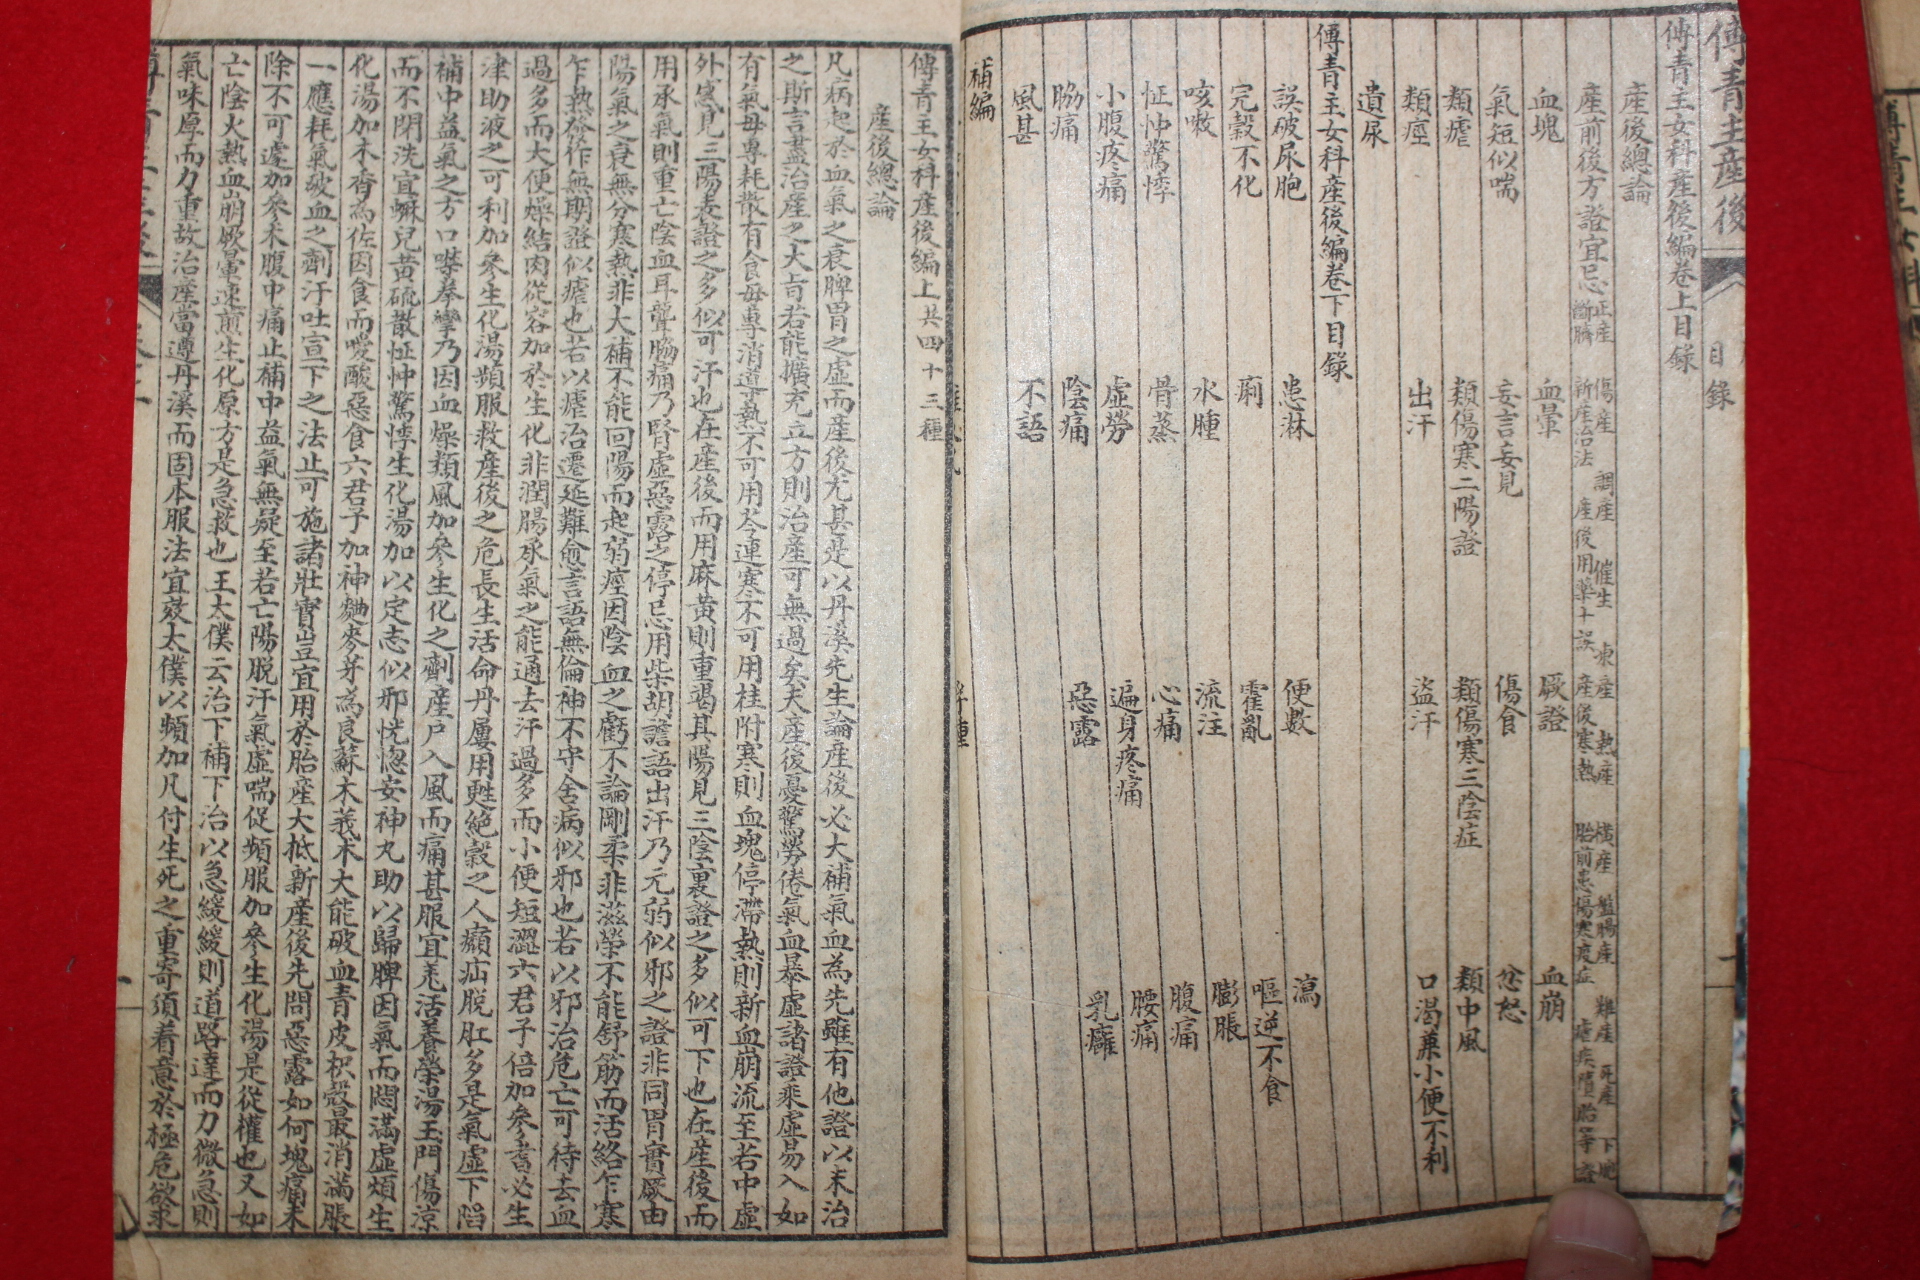 傅青主產後 目錄
傅青主女科產後編卷上目錄
產後總論
產前後方證宜忌 正產 傷產 調產 催生 凍產 熱產 橫產 盤腸產 難產 死產 下胞
斷臍 新產治法 產後用藥十誤 產後寒熱 胎前患傷寒疫症 瘧疾墮胎等證
血塊 血暈 厥證 血崩
氣短似喘 妄言妄見 傷食 忿怒
類瘧 類傷寒二陽證 類傷寒三陰症 類中風
類痙 出汗 盜汗 口渴兼小便不利
遺尿
傅青主女科產後編卷下目錄
誤破尿胞 患淋 便數 瀉
完穀不化 痢 霍亂 嘔逆不食
咳嗽 水腫 流注 膨脹
怔忡驚悸 骨蒸 心痛 腹痛
小腹疼痛 虛勞 遍身疼痛 腰痛
脇痛 陰痛 惡露 乳癰
風甚 不語
補編
傅青主女科產後編上共四十三種
產後總論
凡病起於血氣之衰脾胃之虛而產後尤甚是以丹溪先生論產後必大補氣血為先雖有他證以末治
之斯言盡治產之大旨若能擴充立方則治產可無過矣夫產後憂驚勞倦氣血暴虛諸證乘虛易入如
有氣毋專耗散有食毋專消導熱不可用芩連寒不可用桂附寒則血塊停滯熱則新血崩流至若中虛
外感見三陽表證之多似可汗也在產後而用麻黃則重竭其陽見三陰裏證之多似可下也在產後而
用承氣則重亡陰血耳聾脇痛乃腎虛惡露之停忌用柴胡譫語出汗乃元弱似邪之證非同胃實厥由
陽氣之衰無分寒熱非大補不能回陽而起弱痙因陰血之虧不論剛柔非滋榮不能舒筋而活絡乍寒
乍熱發作無期證似瘧也若以瘧治遷延難愈言語無倫神不守舍病似邪也若以邪治危亡可待去血
過多而大便燥結肉從容加於生化非潤腸承氣之能通去汗過多而小便短澀六君子倍加參耆必生
津助液之可利加參生化湯頻服救產後之危長生活命丹屢用甦絕穀之人癲疝脫肛多是氣虛下陷
補中益氣之方口噤拳攣乃因血燥類風加參生化之劑產戶入風而痛甚服宜羌活養榮湯玉門傷涼
而不閉洗宜蝌兒黃硫散怔忡驚悸生化湯加以定志似邪恍惚安神丸助以歸脾因氣而悶滿虛煩生
化湯加木香為佐因食而噯酸惡食六君子加神麯麥芽為良蘇木莪朮大能破血青皮枳殼最消滿脹
一應耗氣破血之劑汗吐宣下之法止可施諸壯實豈宜用於胎產大抵新產後先問惡露如何塊痛未
除不可遽加參朮腹中痛止補中益氣無疑至若亡陽脫汗氣虛喘促頻服加參生化湯是從權也又如
亡陰火熱血崩厥暈速煎生化原方是急救也王太僕云治下補下治以急緩緩則道路達而力微急則
氣味厚而力重故治產當遵丹溪而固本服法宜效太僕以頻加凡付生死之重寄須着意於極危欲求